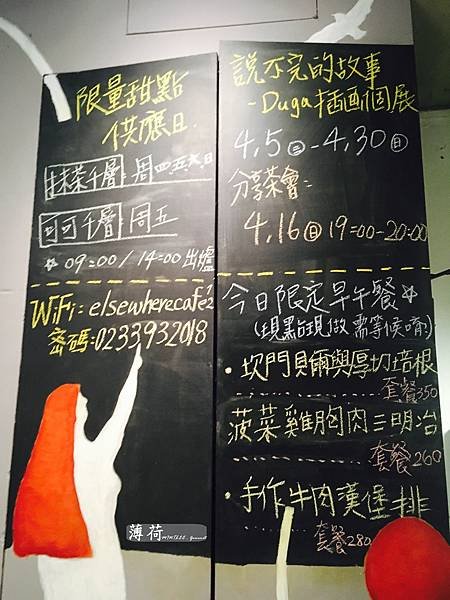 限量甜點
供應日.
抹茶千層:周四五六日
可可千層:周五
☆ 09:00/14:00出爐
WiFi:elsewherecafé
密碼:0233932018
說不完的故事
-Duga插画個展
4,5㊂-4,30㊐
分享茶會:
4,16㊐19:00-20:00
今日限定早午餐☆
(現點現做 需等候唷!)
·坎門貝爾與厚切培根
套餐350
菠菜雞胸肉三明治
套餐260
·手作牛肉漢堡排
套餐280
薄荷